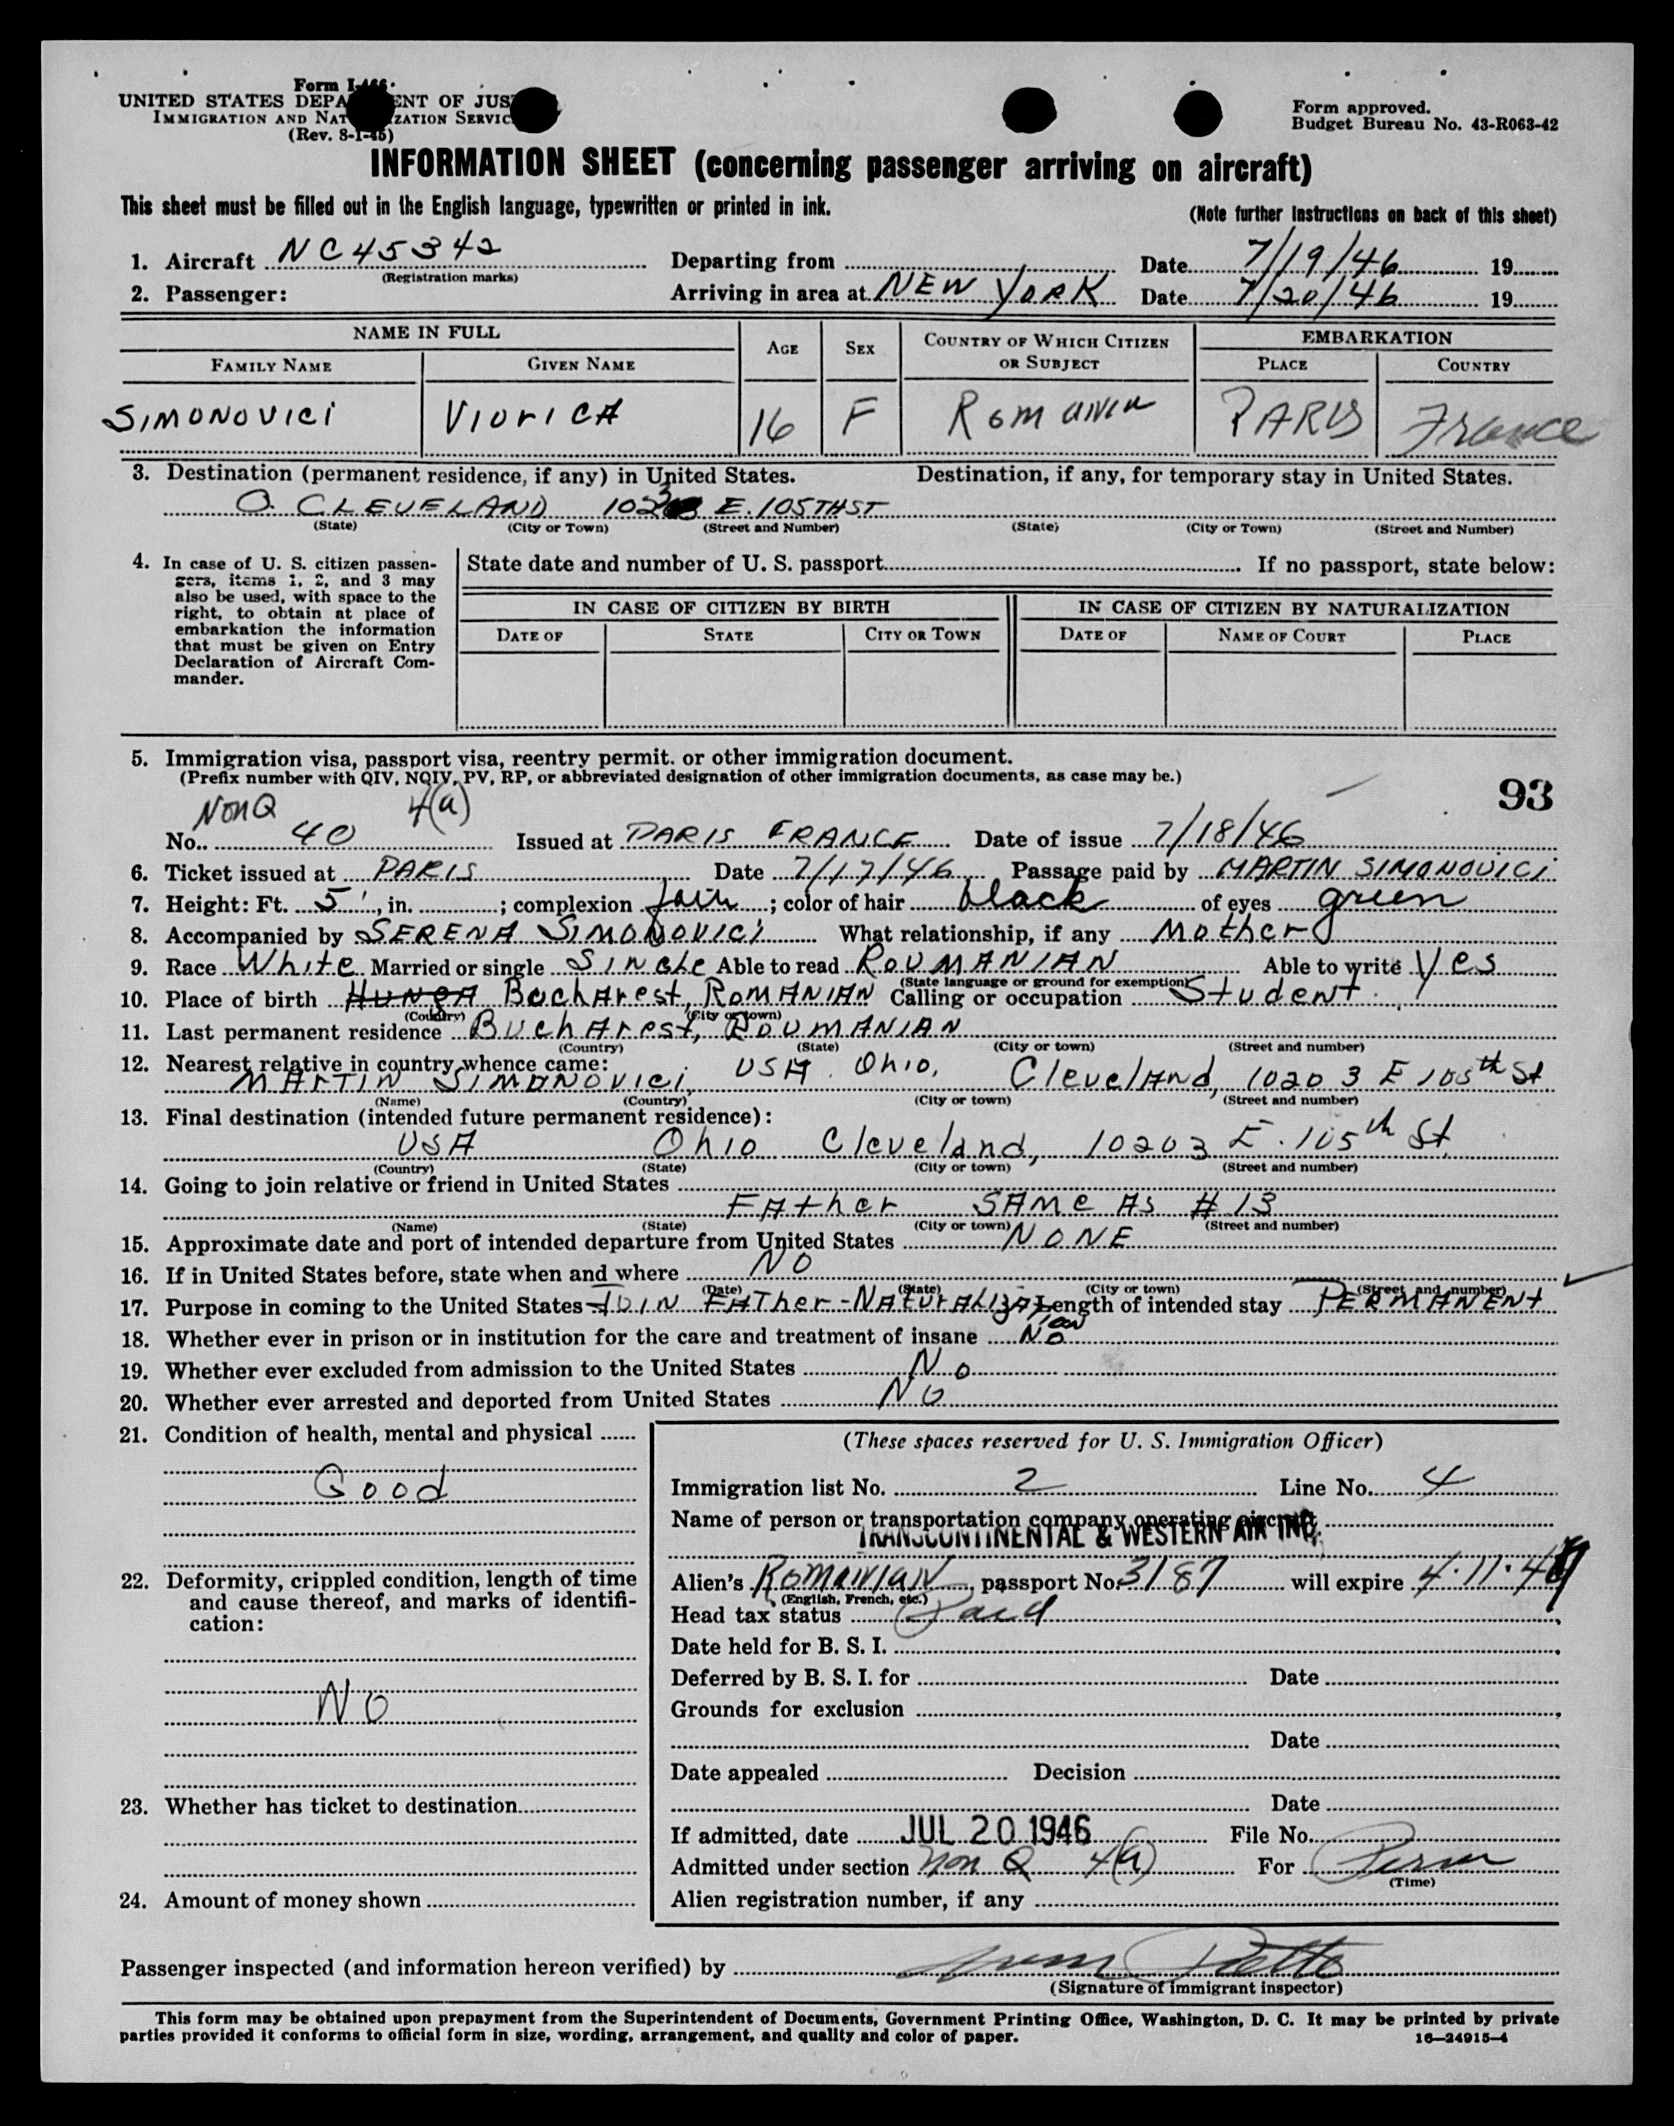 Form I-466
UNITED STATES DEPARTMENT OF JUSTICE
IMMIGRATION AND NATURALIZATION SERVICE
(Rev. 8-1-45)
Form approved.
Budget Bureau No. 43-R063-42
INFORMATION SHEET (concerning passenger arriving on aircraft)
This sheet must be filled out in the English language, typewritten or printed in ink.
(Note further instructions on back of this sheet)
1. Aircraft NC45342 Departing from Date 7/19/46 19
(Registration marks)
2. Passenger: Arriving in area at NEW YORK Date 7/20/46 19
NAME IN FULL AGE SEX COUNTRY OF WHICH CITIZEN OR SUBJECT EMBARKATION
FAMILY NAME GIVEN NAME PLACE COUNTRY
SIMONOVICI VIORICA 16 F Romania PARIS France
3. Destination (permanent residence, if any) in United States. Destination, if any, for temporary stay in United States.
O. CLEVELAND 1023 E. 105TH ST
(State) (City or Town) (Street and Number) (State) (City or Town) (Street and Number)
4. In case of U. S. citizen passen-
gers, items 1, 2, and 3 may
also be used, with space to the
right, to obtain at place of
embarkation the information
that must be given on Entry
Declaration of Aircraft Com-
mander.
State date and number of U. S. passport If no passport, state below:
IN CASE OF CITIZEN BY BIRTH IN CASE OF CITIZEN BY NATURALIZATION
DATE OF STATE CITY OR TOWN DATE OF NAME OF COURT PLACE
5. Immigration visa, passport visa, reentry permit, or other immigration document.
(Prefix number with QIV, NQIV, PV, RP, or abbreviated designation of other immigration documents, as case may be.)
93
NonQ 4(a)
No. 40 Issued at PARIS FRANCE Date of issue 7/18/46
6. Ticket issued at PARIS Date 7/17/46 Passage paid by MARTIN SIMONOVICI
7. Height: Ft. 5', in. ; complexion fair ; color of hair black of eyes green
8. Accompanied by SERENA SIMONOVICI What relationship, if any Mother
9. Race White Married or single SINGLE Able to read ROUMANIAN Able to write Yes
(State language or ground for exemption)
10. Place of birth HUNGA Bucharest, ROMANIAN Calling or occupation Student
(Country) (City or town)
11. Last permanent residence Bucharest, ROUMANIAN
(Country) (State) (City or town) (Street and number)
12. Nearest relative in country whence came:
MARTIN SIMONOVICI, USA. Ohio, Cleveland, 10203 E 105th St
(Name) (Country) (City or town) (Street and number)
13. Final destination (intended future permanent residence):
USA Ohio Cleveland, 10203 E. 105th St.
(Country) (State) (City or town) (Street and number)
14. Going to join relative or friend in United States
FATHER SAME AS #13
(Name) (State) (City or town) (Street and number)
15. Approximate date and port of intended departure from United States NONE
16. If in United States before, state when and where NO
(Date) (State) (City or town) (Street and number)
17. Purpose in coming to the United States JOIN FATHER - NATURALIZATION Length of intended stay PERMANENT
18. Whether ever in prison or in institution for the care and treatment of insane No
19. Whether ever excluded from admission to the United States No
20. Whether ever arrested and deported from United States No
21. Condition of health, mental and physical
Good
22. Deformity, crippled condition, length of time
and cause thereof, and marks of identifi-
cation:
No
23. Whether has ticket to destination
24. Amount of money shown
(These spaces reserved for U. S. Immigration Officer)
Immigration list No. 2 Line No. 4
Name of person or transportation company operating aircraft
TRANSCONTINENTAL & WESTERN AIR INC.
Alien's ROMANIAN, passport No. 3187 will expire 4·11·49
(English, French, etc.)
Head tax status Paid
Date held for B. S. I.
Deferred by B. S. I. for Date
Grounds for exclusion
Date
Date appealed Decision
Date
If admitted, date JUL 20 1946 File No.
Admitted under section Non Q 4(a) For Perm
(Time)
Alien registration number, if any
Passenger inspected (and information hereon verified) by
(Signature of immigrant inspector)
This form may be obtained upon prepayment from the Superintendent of Documents, Government Printing Office, Washington, D. C. It may be printed by private
parties provided it conforms to official form in size, wording, arrangement, and quality and color of paper. 16—24915-4